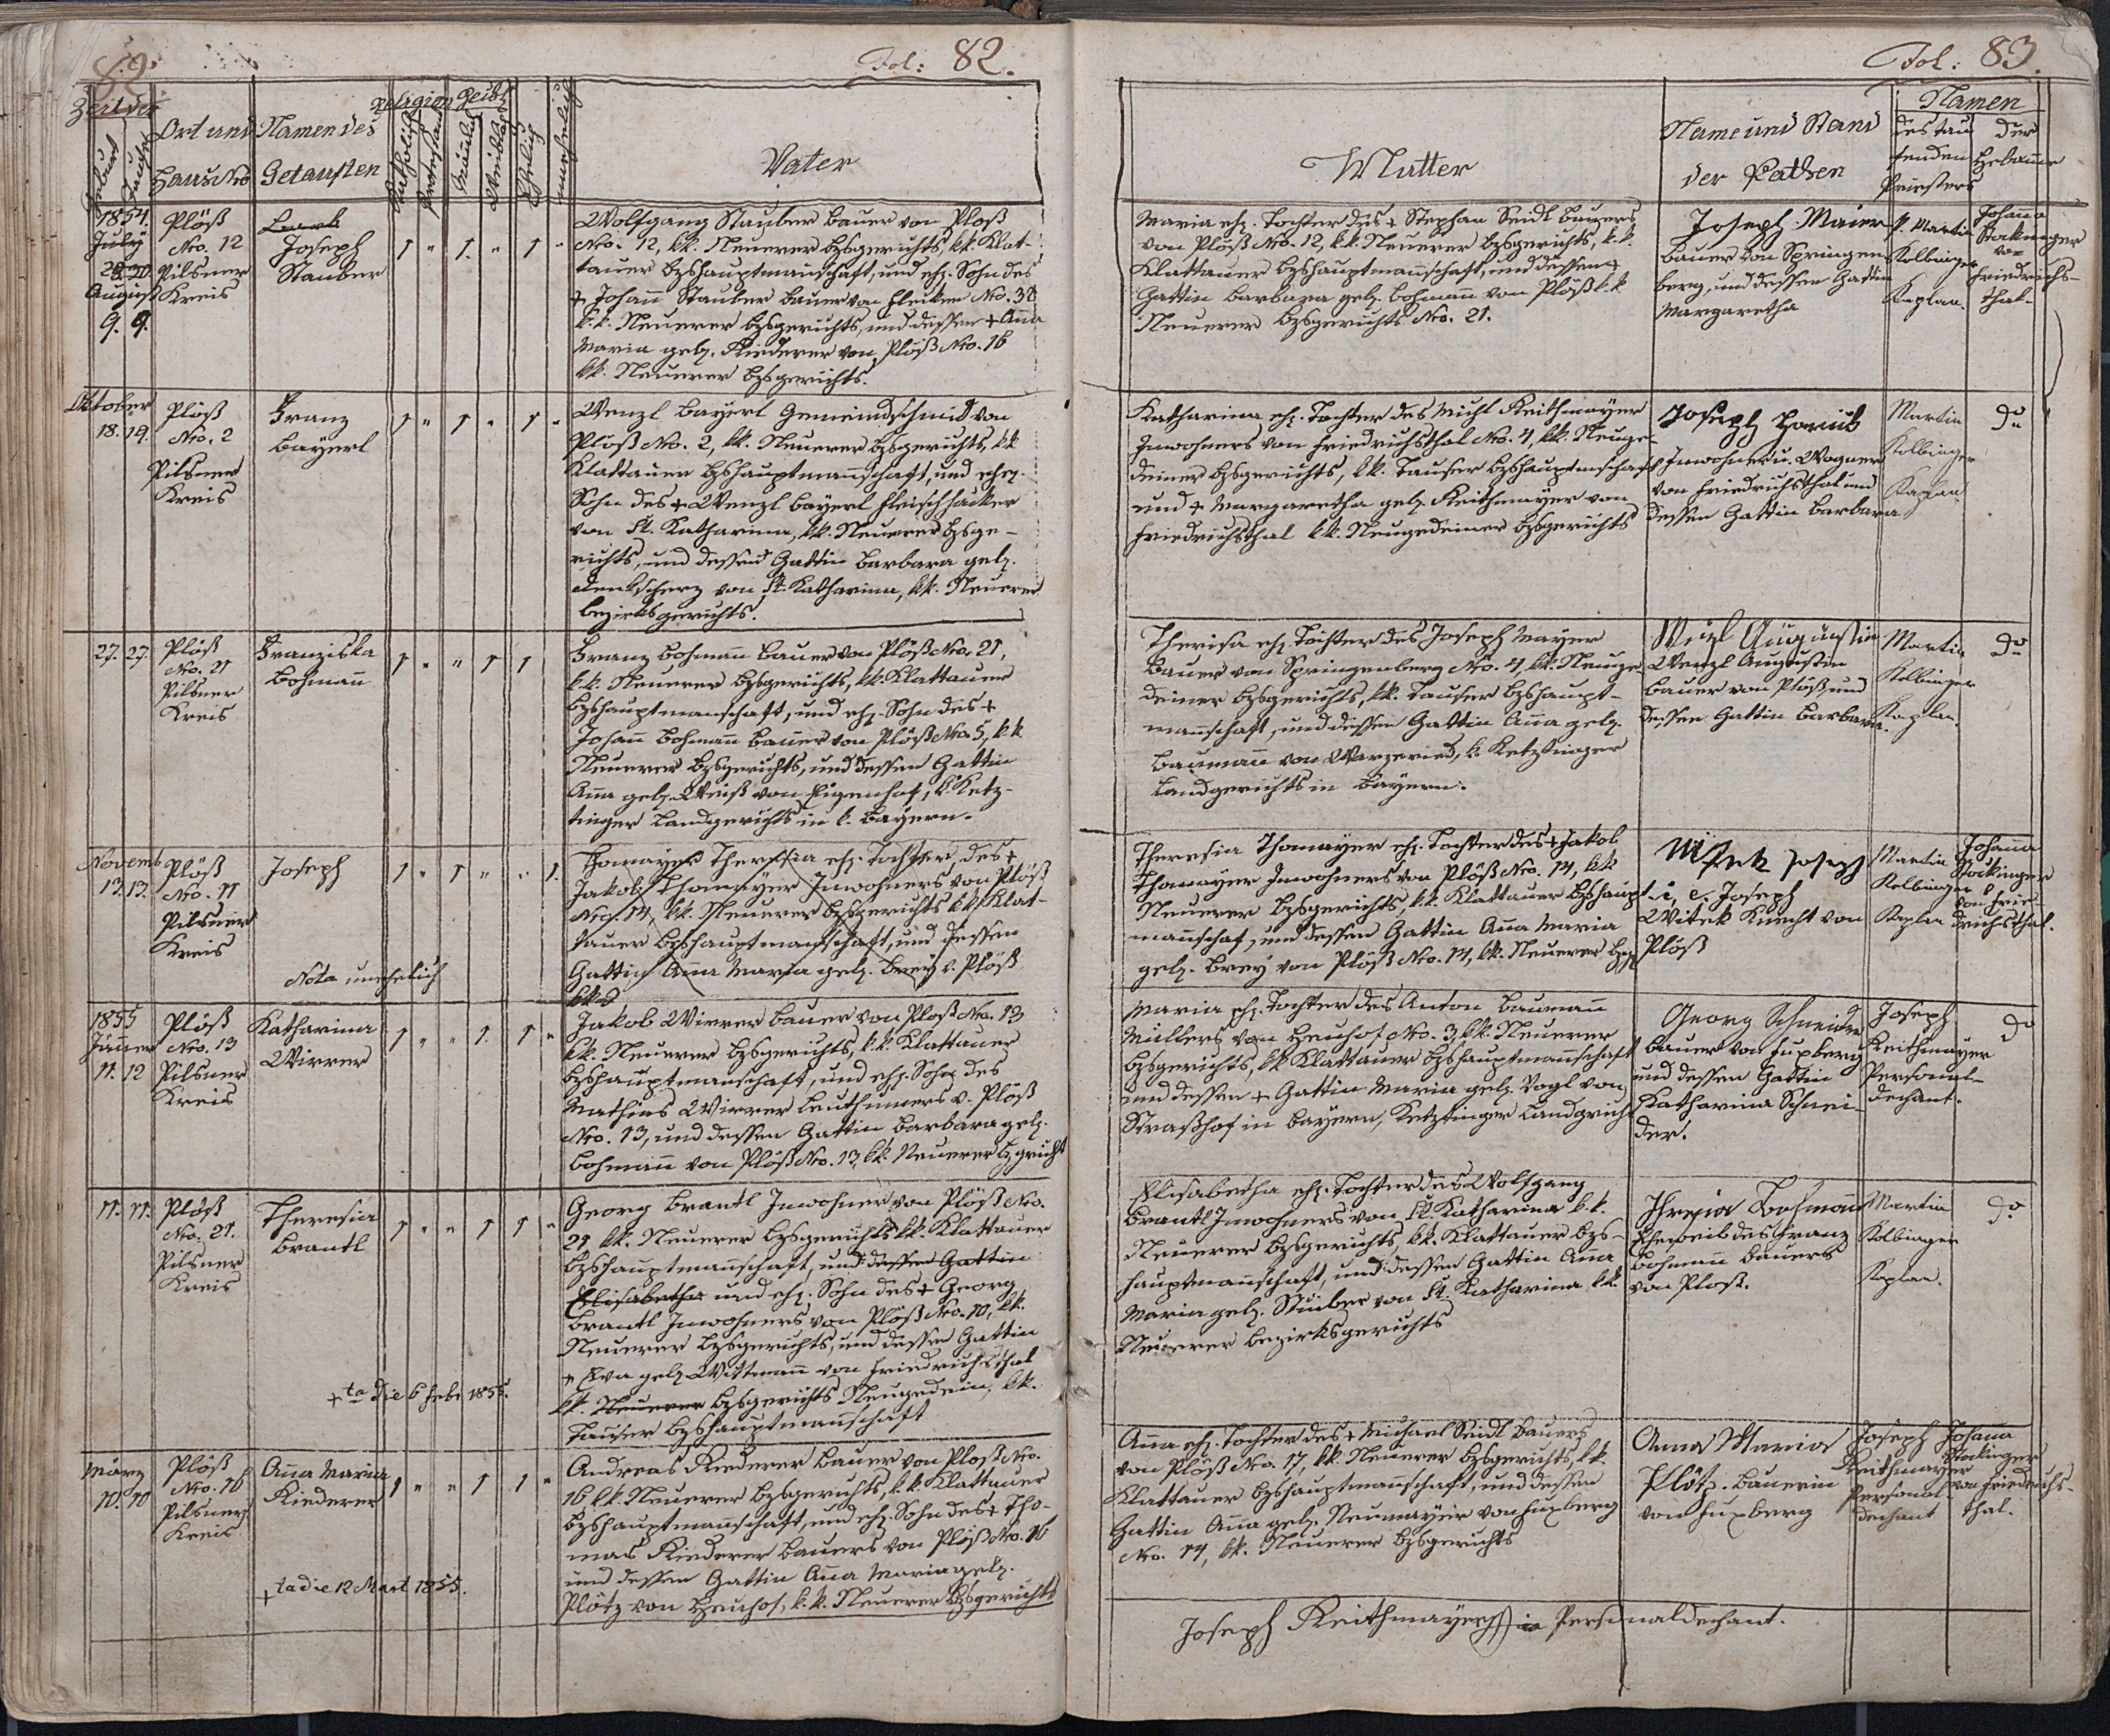 Fol: 82.
Zeit der
Geburt
Taufe
Ort und
Haus Nro
Namen des
Getauften
Religion
Katholisch
Protestant
Geschl
Männlich
Weiblich
Ehelich
unehelich
Vater
1854
July
29. 30
August
9. 9.
Plöß
Nro. 12
Pilsner
Kreis
Joseph
Stauber
1 " 1. " 1 "
Wolfgang Stauber Bauer von Ploß
Nro. 12, kk. Neuerer Bzsgerichts, kk. Klat-
tauer Bzshauptmannschaft, und eh. Sohn des
+ Johann Stauber Bauer von Flecken No. 38
k.k. Neuerer Bzsgerichts, und dessen + Anna
Maria geb. Riederer von Plöß Nro. 16
kk. Neuerer Bzsgerichts.
Oktober
18. 19.
Plöß
Nro. 2
Pilsner
Kreis
Franz
Bayerl
1 " 1 " 1 "
Wenzl Bayerl Gemeindschmid von
Plöß Nro. 2, kk. Neuerer Bzsgerichts, kk
Klattauer Bzshauptmannschaft, und ehel.
Sohn des + Wenzl Bayerl Fleischhacker
von St. Katharina, kk. Neuerer Bzsge-
richts, und dessen Gattin Barbara geb.
Denkscherz von St. Katharina, kk. Neuerer
Bezirksgerichts.
27. 27.
Plöß
No. 21
Pilsner
Kreis
Franziska
Bohmann
1 " " 1 1
Franz Bohmann Bauer von Plöß Nro. 21,
k.k. Neuerer Bzsgerichts, kk. Klattauer
Bzshauptmanschaft, und eh. Sohn des +
Johann Bohmann Bauer von Plöß Nro. 5, kk
Neuerer Bzsgerichts, und dessen Gattin
Anna geb. Weiß von Eigenhof, k. Kötz-
tinger Landgerichts in k. Bayern.
Novemb
13. 13.
Plöß
No. 11
Pilsner
Kreis
Joseph
1 " 1 " " 1.
Nota unehelich
Thomayer Theresia eh. Tochter, des +
Jakob Thomayer Inwohners von Plöß
Nro. 14, kk. Neuerer Bzsgerichts kk. Klat-
tauer Bzshauptmanschaft, und dessen
Gattin Anna Maria geb. Brey v. Plöß
1855
Jänner
11. 12
Plöß
Nro. 13
Pilsner
Kreis
Katharina
Wirrer
1 " " 1. 1 "
Jakob Wirrer Bauer von Ploß Nro. 13
kk. Neuerer Bzsgerichts, k.k. Klattauer
Bzshauptmanschaft, und eh. Sohn des
Mathias Wirrer v. Plöß
Nro. 13, und dessen Gattin Barbara geb.
Bohmann von Plöß Nro. 13, kk. Neuerer Bzgricht
11. 11.
Plöß
No. 21.
Pilsner
Kreis
Theresia
Brantl
1 " " 1 1 "
+ta die 6 Febr 1855.
Georg Brantl Inwohner von Plöß Nro.
21 kk. Neuerer Bzsgerichts kk. Klattauer
Bzshauptmannschaft, und dessen Gattin
Elisabetha und eh. Sohn des + Georg
Brantl Inwohners von Plöß Nro. 10, kk.
Neuerer Bzsgerichts, und dessen Gattin
Eva geb. Wittmann von Friedrichsthal
kk. Neuerer Bzsgerichts Neugedein, kk.
Tauser Bzshauptmannschaft
März
10. 10
Plöß
Nro. 16
Pilsner
Kreis
Anna Maria
Riederer
1 " " 1 1 "
+ta die 12 Mart 1855.
Andreas Riederer Bauer von Ploß Nro.
16 kk. Neuerer Bzsgerichts, kk. Klattauer
Bzshauptmannschaft, und eh. Sohn des + Tho-
mas Riederer Bauers von Plöß No. 16
und dessen Gattin Anna Maria geb.
Plötz von Heuhof, k.k. Neuerer Bzsgerichts
Fol: 83.
Mutter
Name und Stand
der Pathen
Namen
des tau
fenden
Priesters
der
Hebamme
Maria eh. Tochter des + Stephan Seidl Bauers
von Plöß No. 12, k.k. Neuerer Bzsgerichts, k.k.
Klattauer Bzshauptmannschaft, und dessen +
Gattin Barbara geb. Bohmann von Plöß k.k
Neuerer Bzsgerichts No. 21.
Joseph Maier
Bauer von Springen
berg, und dessen Gattin
Margaretha
P. Martin
Kolbinger
Kaplan.
Johanna
Stockinger
von
Friedrichs-
thal.
Katharina eh. Tochter des Michl Keithmayer
Inwohners von Friedrichsthal No. 4, kk. Neuge-
deiner Bzsgerichts, kk. Tauser Bzshauptmschaft
und + Margaretha geb. Keithmayer von
Friedrichsthal kk. Neugedeiner Bzsgerichts
Joseph
Inwohner u. Wagner
von Friedrichsthal und
dessen Gattin Barbara
Martin
Kolbinger
Kaplan
do
Theresia eh. Tochter des Joseph Mayer
Bauer von Springenberg No. 4 kk. Neuge-
deiner Bzsgerichts, kk. Tauser Bzshaupt-
mannschaft, und dessen Gattin Anna geb.
Baumann von Warzenried, k. Kötztinger
Landgerichts in Bayern.
Wenzl Augustin
Wenzl Augustin
Bauer von Plöß und
dessen Gattin Barbara.
Martin
Kolbinger
Kaplan
do
Theresia Thomayer eh. Tochter des + Jakob
Thomayer Inwohners von Plöß Nro. 14, kk
Neuerer Bzsgerichts, k.k. Klattauer Bzshaupt-
mannschaf, und dessen Gattin Anna Maria
geb. Brey von Plöß Nro. 14, kk. Neuerer Bzg
Witek Joseph
i. e. Joseph
Witek Knecht von
Plöß
Martin
Kolbinger
Kaplan
Johanna
Stockinger
von Frie-
drichsthal.
Maria eh. Tochter des Anton Baumann
Müllers von Heuhof Nro. 3, kk. Neuerer
Bzsgerichts, kk Klattauer Bzshauptmannschaft
und dessen + Gattin Maria geb. Vogl von
Straßhof in Bayern, Kötztinger Landgericht
Georg Schneider
Bauer von Fuxberg
und dessen Gattin
Katharina Schnei-
der.
Joseph
Keithmayer
Personal-
dechant.
do
Elisabetha eh. Tochter des Wolfgang
Brantl Inwohners von St. Katharina k.k.
Neuerer Bzsgerichts, kk. Klattauer Bzs-
hauptmannschaft, und dessen Gattin Anna
Maria geb. Stuiber von St. Katharina kk.
Neuerer Bezirksgerichts
Theresia Bohmann
Eheweib des Franz
Bohmann Bauers
von Plöß.
Martin
Kolbinger
Kaplan.
do
Anna eh. Tochter des + Michael Seidl Bauers
von Plöß No. 17, kk. Neuerer Bzsgerichts, kk.
Klattauer Bzshauptmannschaft, und dessen
Gattin Anna geb. Neumayer von Fuxberg
Nro. 14, kk. Neuerer Bzsgerichts
Anna Maria
Plötz. Bauerin
von Fuxberg
Joseph
Keithmayer
Personal-
dechant
Johana
Stockinger
von Friedrichs-
thal.
Joseph Keithmayer Personaldechant.